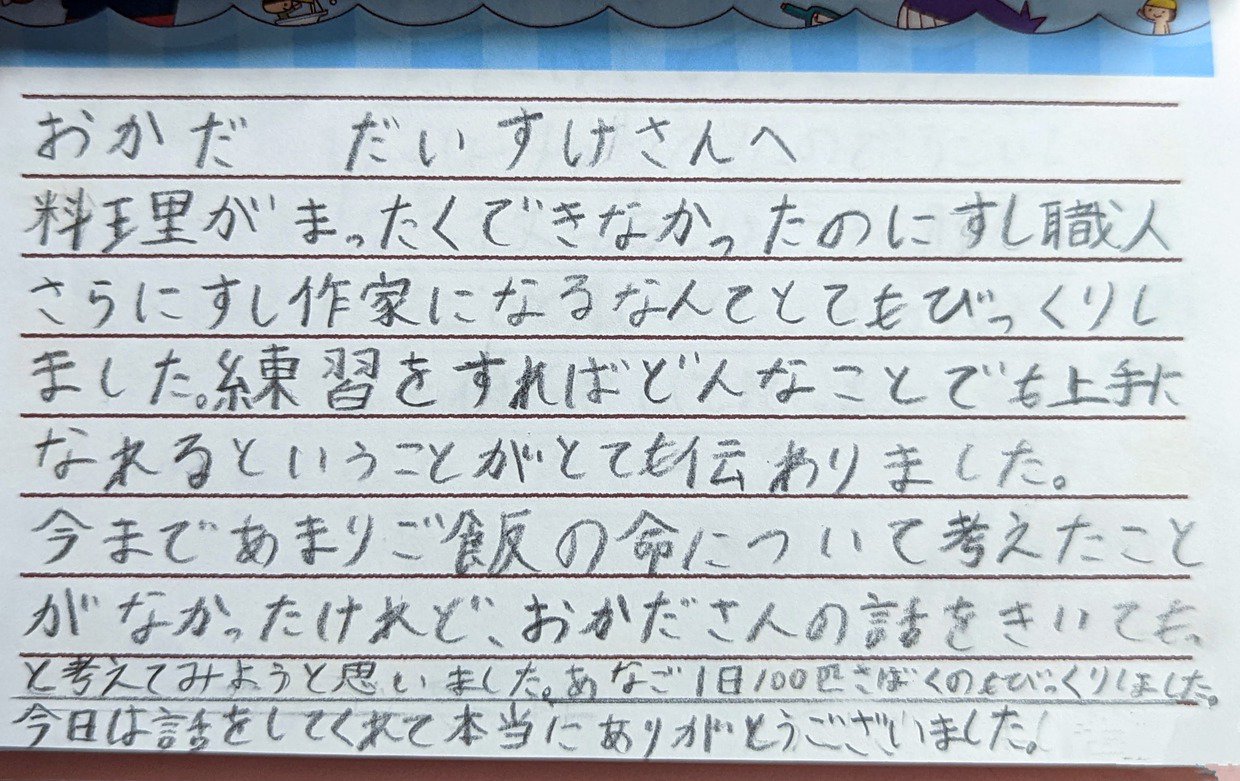 おかだ だいすけさんへ
料理がまったくできなかったのにすし職人
さらにすし作家になるなんてとてもびっくりし
ました。練習をすればどんなことでも上手に
なれるということがとても伝わりました。
今まであまりご飯の命について考えたこと
がなかったけれど、おかださんの話をきいても、
と考えてみようと思いました。あなご1日100匹さばくのもびっくりしました。
今日は話をしてくれて本当にありがとうございました。